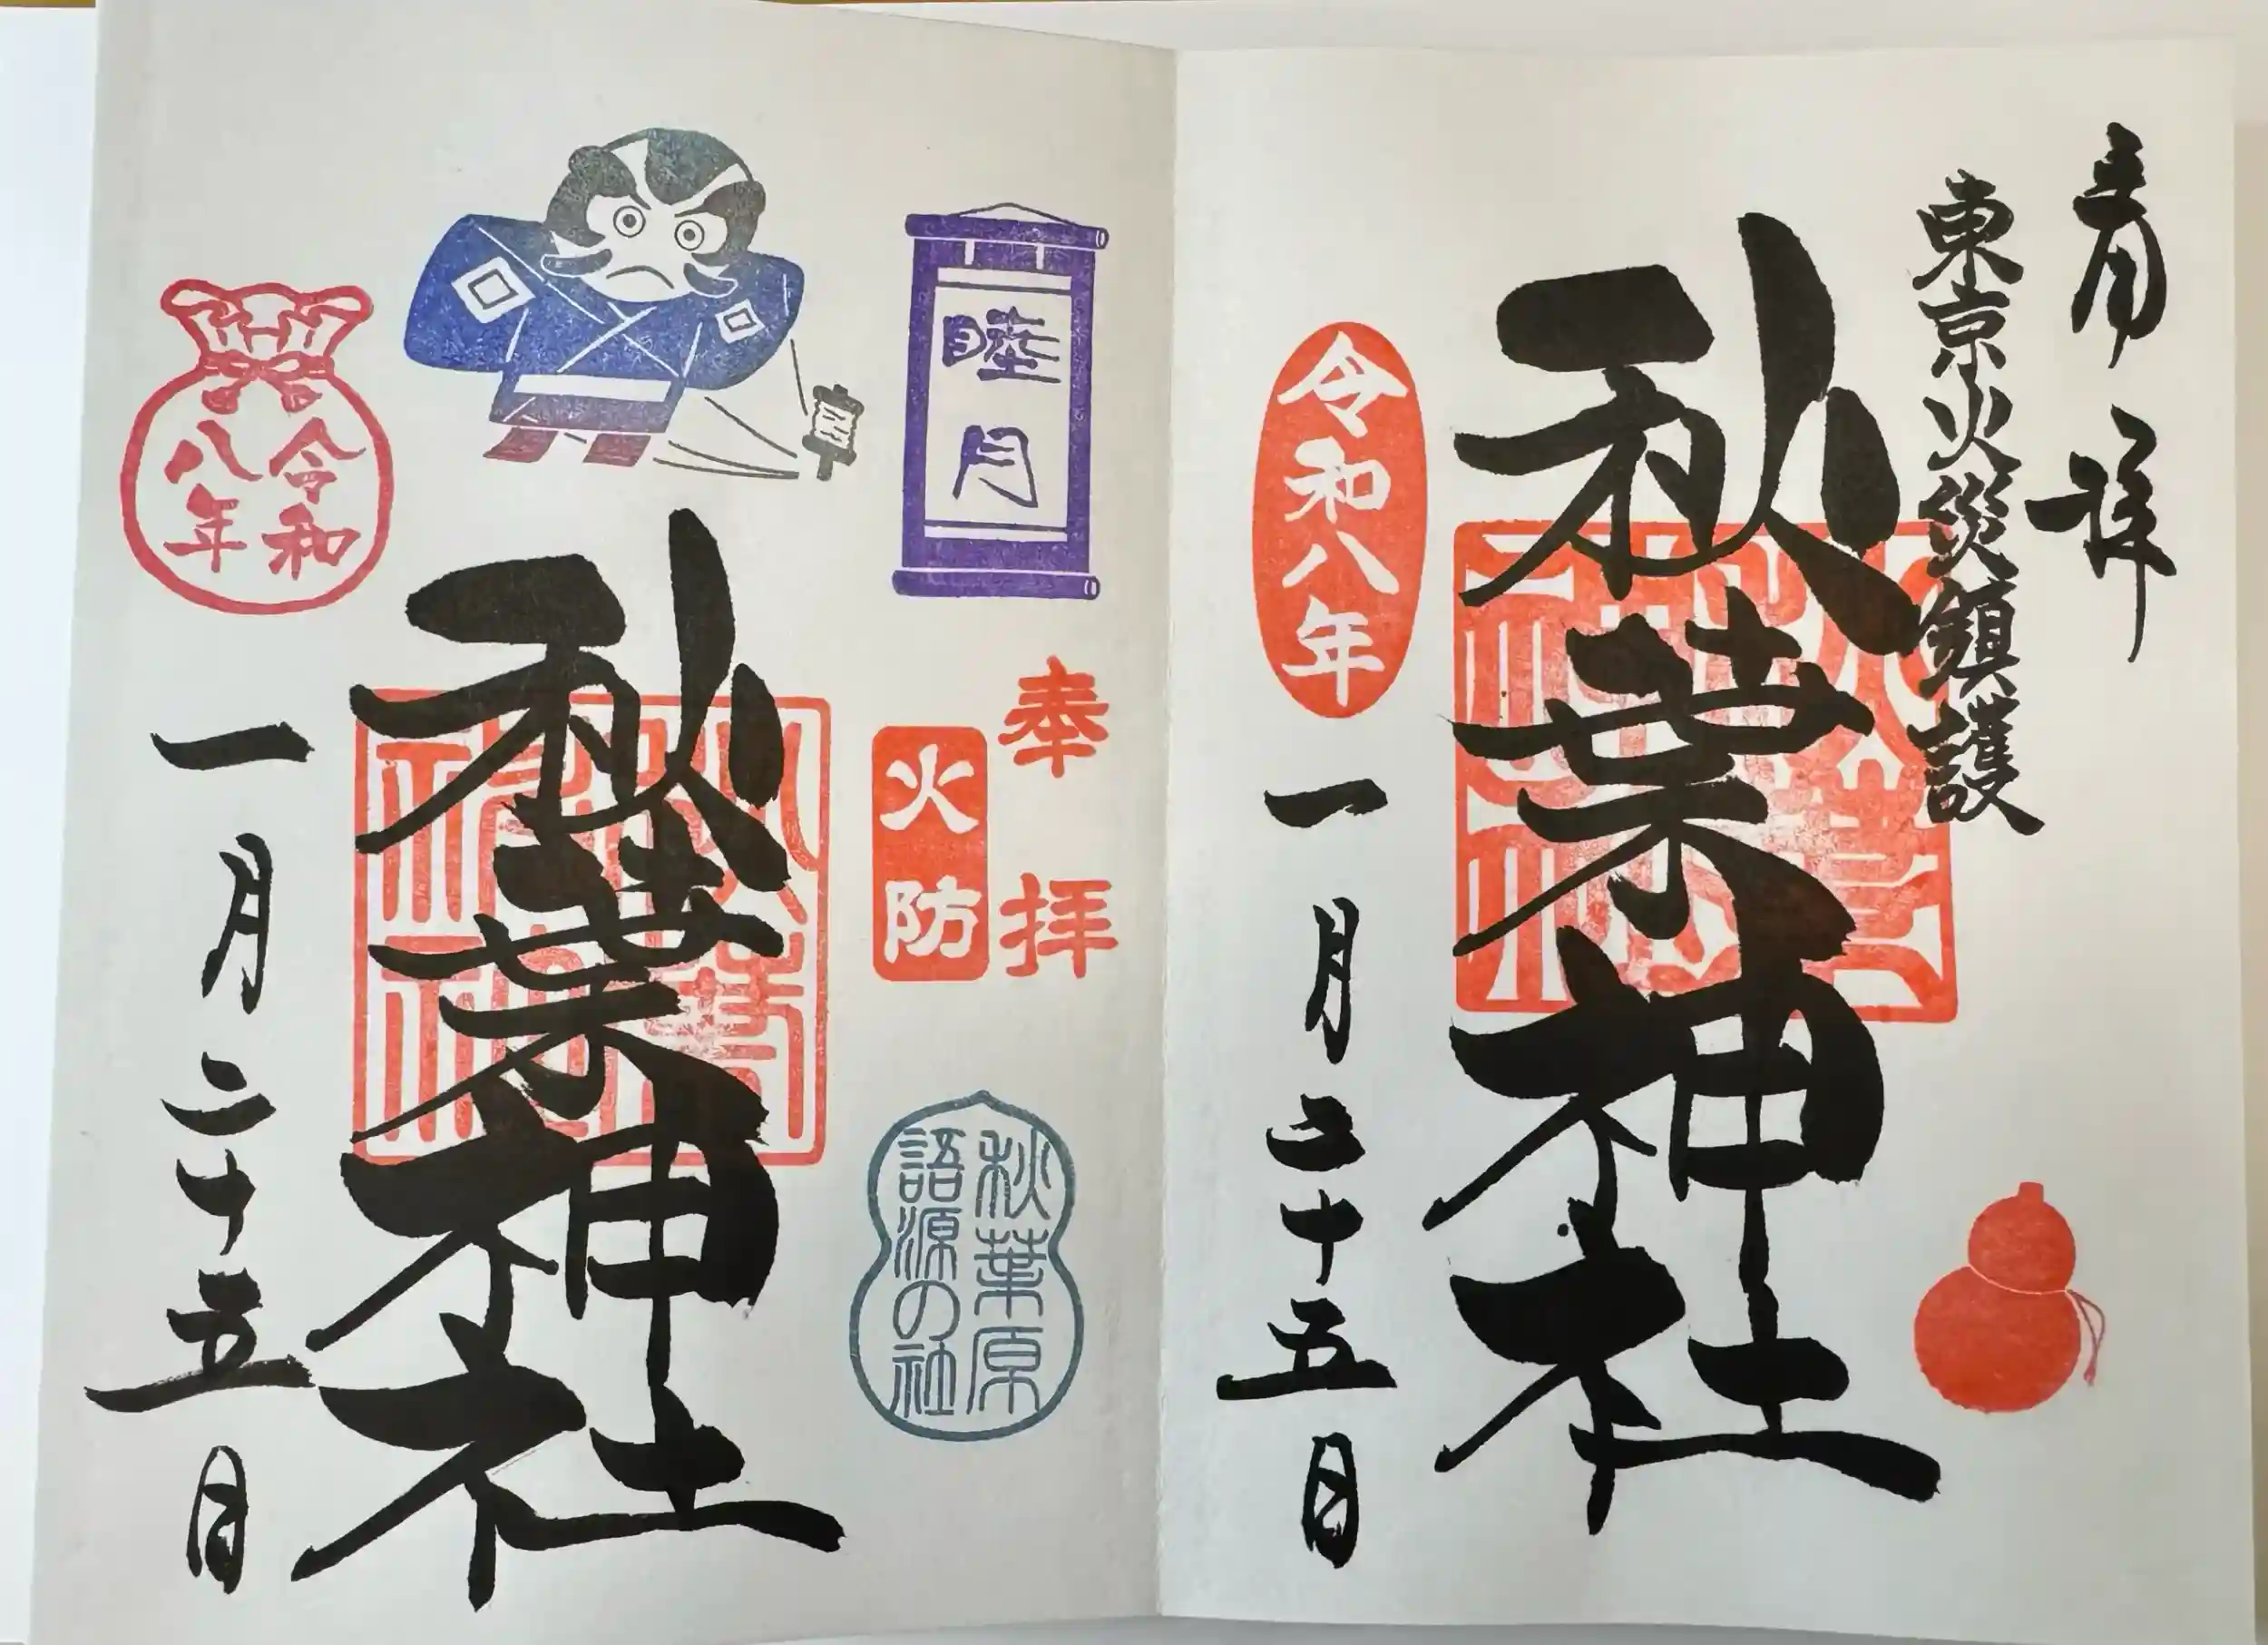 拝
東京火災鎮護
秋葉神社
令和八年
一月二十五日
睦月
奉拝
火防
秋葉原
語源の社
秋葉神社
令和
八年
一月二十五日